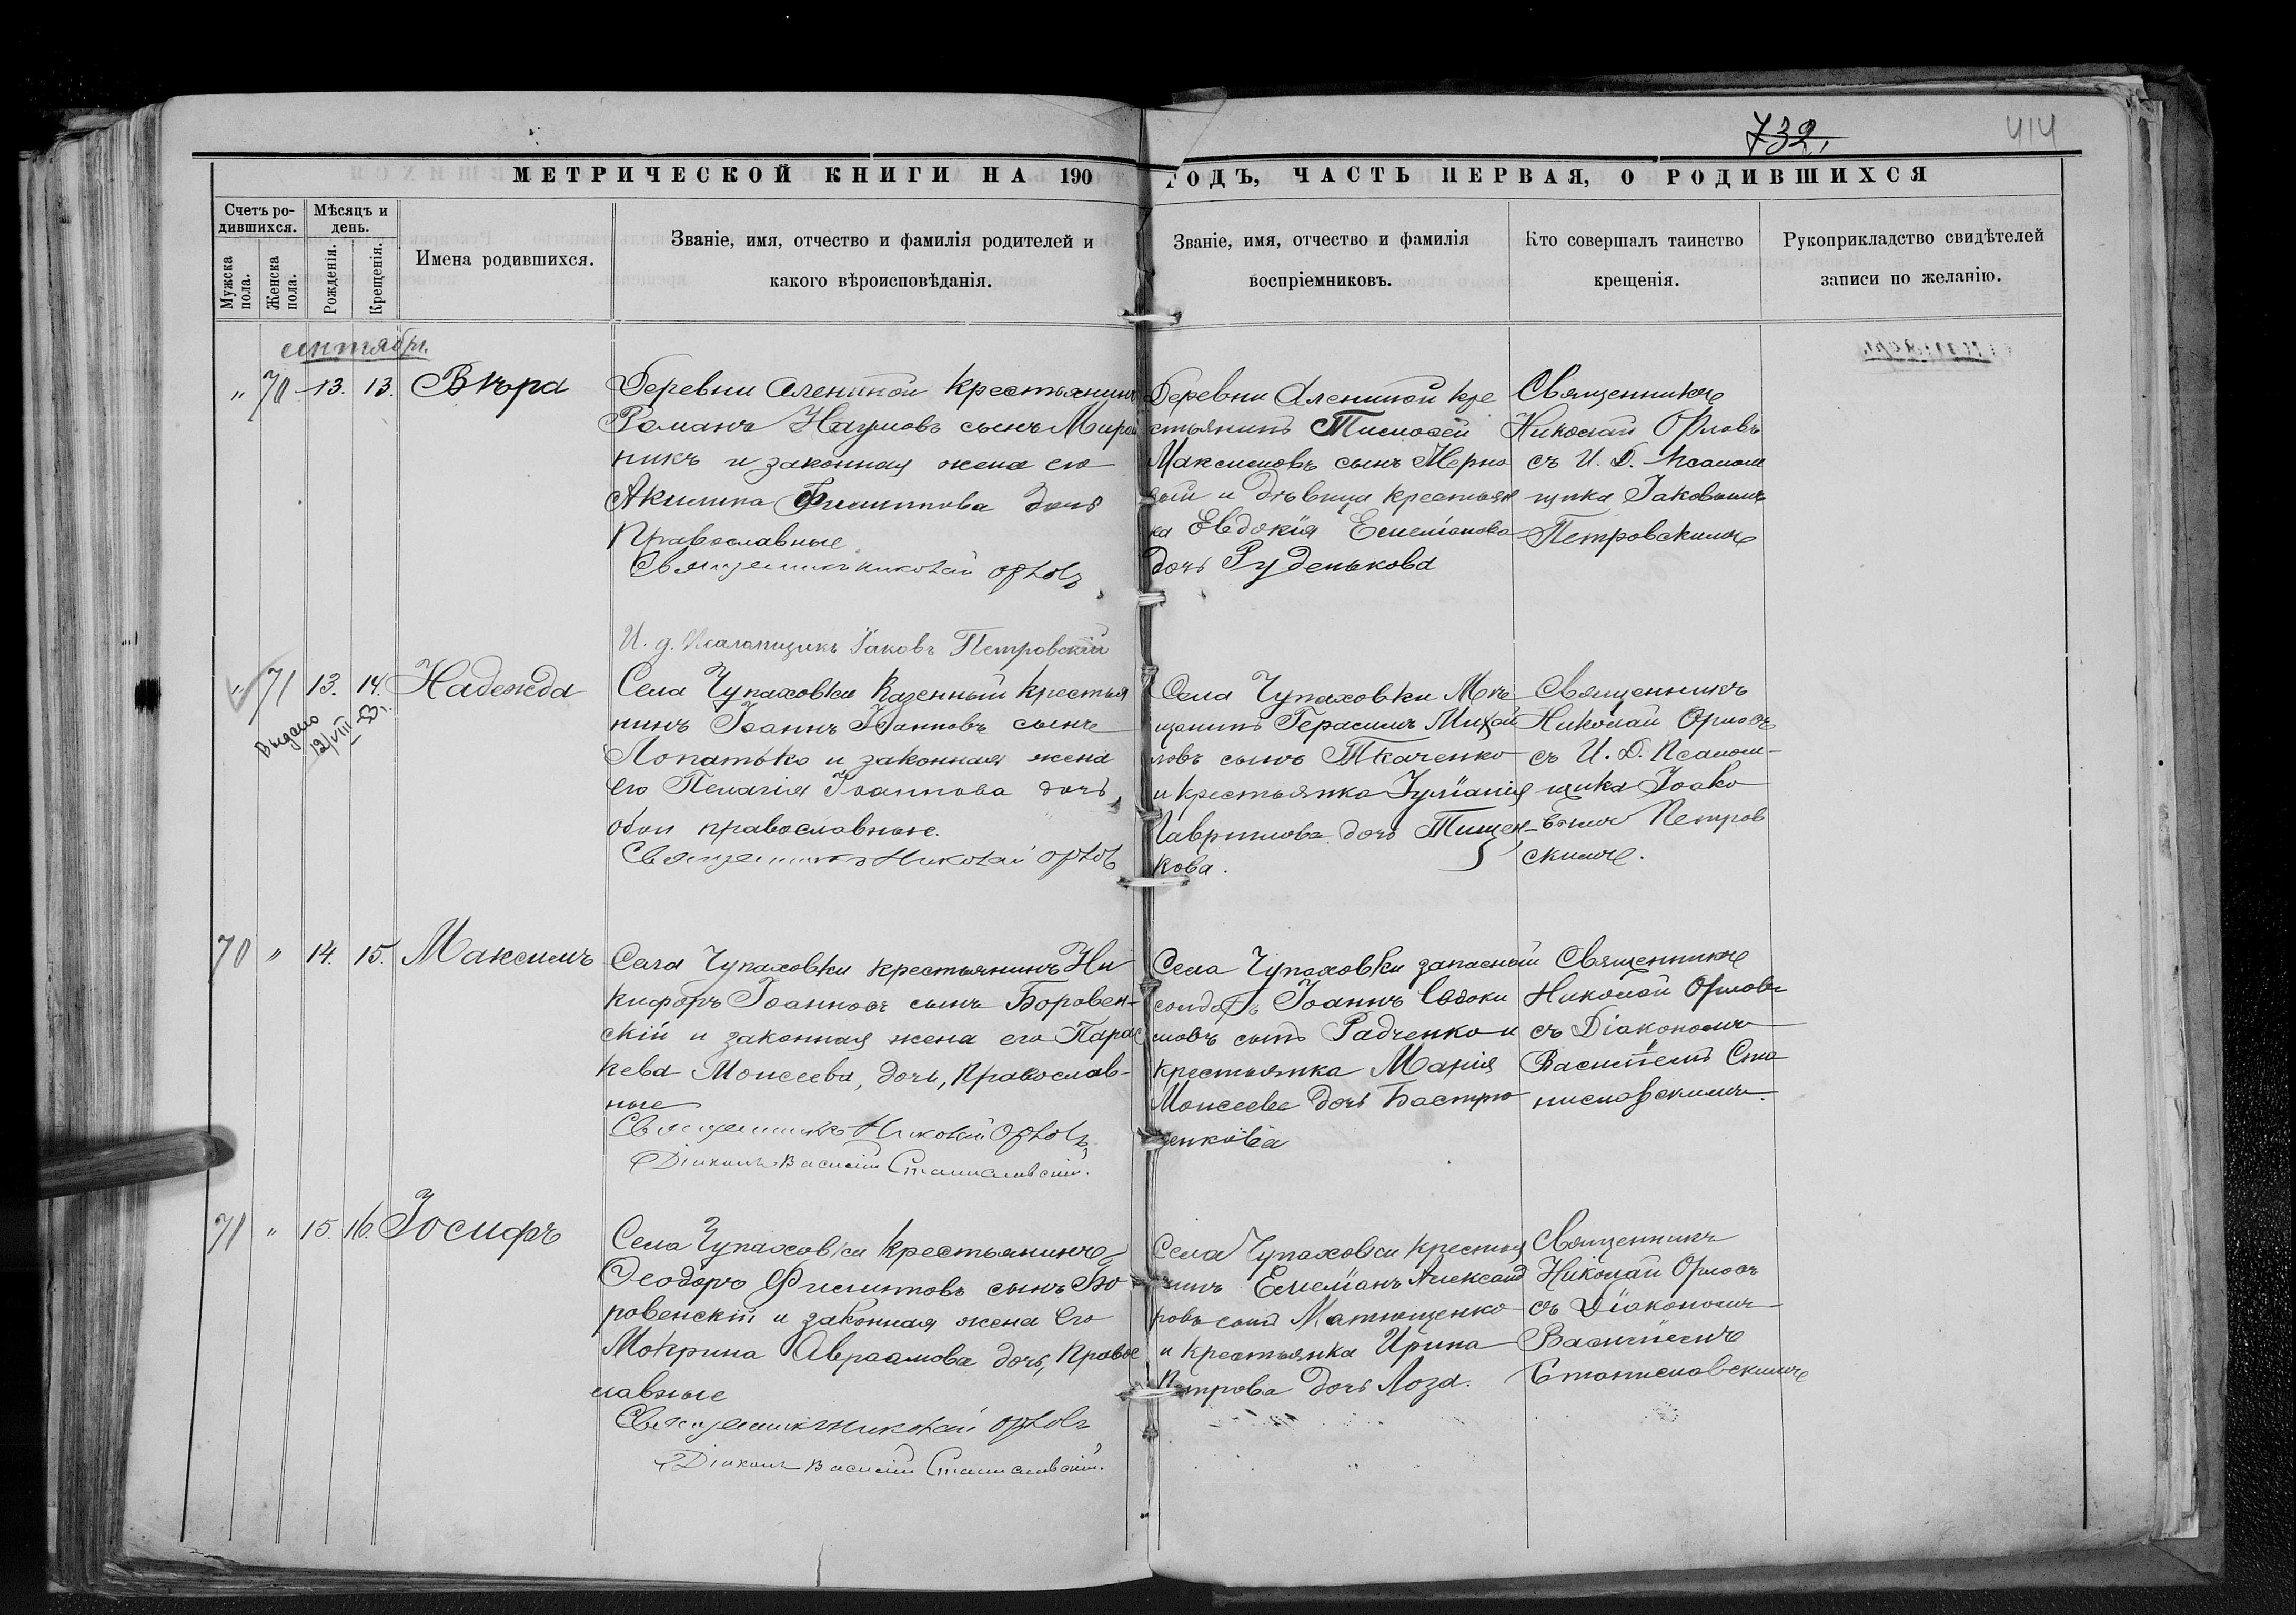 732,
414
МЕТРИЧЕСКОЙ КНИГИ НА 190 ГОДЪ, ЧАСТЬ ПЕРВАЯ, О РОДИВШИХСЯ
Счетъ ро-
дившихся.
Мужска
пола.
Женска
пола.
Мѣсяцъ и
день.
Рожденія.
Крещенія.
Имена родившихся.
Званіе, имя, отчество и фамилія родителей и
какого вѣроисповѣданія.
Званіе, имя, отчество и фамилія
воспріемниковъ.
Кто совершалъ таинство
крещенія.
Рукоприкладство свидѣтелей
записи по желанію.
сентябрь.
" 70 13. 13. Вѣра
Деревни Алениной крестьянинъ
Романъ Наумовъ сынъ Мирош
никъ и законная жена его
Акилина Филиппова дочь
Православные
Священникъ Николай Орловъ
И. д. Псаломщикъ Іаковъ Петровскій
Деревни Алениной кре
стьянинъ Тимоѳей
Максимовъ сынъ
и дѣвица крестьян
ка Евдокія Емеліанова
дочь Руденькова
Священникъ
Николай Орловъ
съ И. Д. Псалом
щика Іаковымъ
Петровскимъ
" 71 13. 14. Надежда
Выдано
12/VIII-53 г.
Села Чупаховки Казенный крестья
нинъ Іоаннъ Іоанновъ сынъ
Лопатько и законная жена
его Пелагія Іоаннова дочь,
обои православные.
Священникъ Николай Орловъ
Села Чупаховки Мѣ
щанинъ Герасимъ Михаи
ловъ сынъ Ткаченко
и крестьянка Іуліанія
Гавриилова дочь Тищен-
кова.
Священникъ
Николай Орловъ
съ И. Д. Псалом-
щика Іоако
вымъ Петров
скимъ.
70 " 14. 15. Максимъ
Села Чупаховки крестьянинъ Ни
кифоръ Іоанновъ сынъ Боровен-
скій и законная жена его Парас
кева Моисеева, дочь, Православ-
ные
Священникъ Николай Орловъ
Діаконъ Василій Станиславскій.
Села Чупаховки запасный
солдатъ Іоаннъ Евдоки
мовъ сынъ Радченко и
крестьянка Марія
Моисеева дочь Бастрю
ченкова
Священникъ
Николай Орловъ
съ Діакономъ
Василіемъ Ста
ниславскимъ.
71 " 15. 16. Іосифъ
Села Чупаховки крестьянинъ
Ѳеодоръ Филипповъ сынъ Бо
ровенскій и законная жена его
Мокрина Авраамова дочь, Правос
лавные
Священникъ Николай Орловъ
Діаконъ Василій Станиславскій.
Села Чупаховки крестья
нинъ Емеліанъ Александ
ровъ сынъ Матющенко
и крестьянка Ирина
Петрова дочь Лоза.
Священникъ
Николай Орловъ
съ Діакономъ
Василіемъ
Станиславскимъ